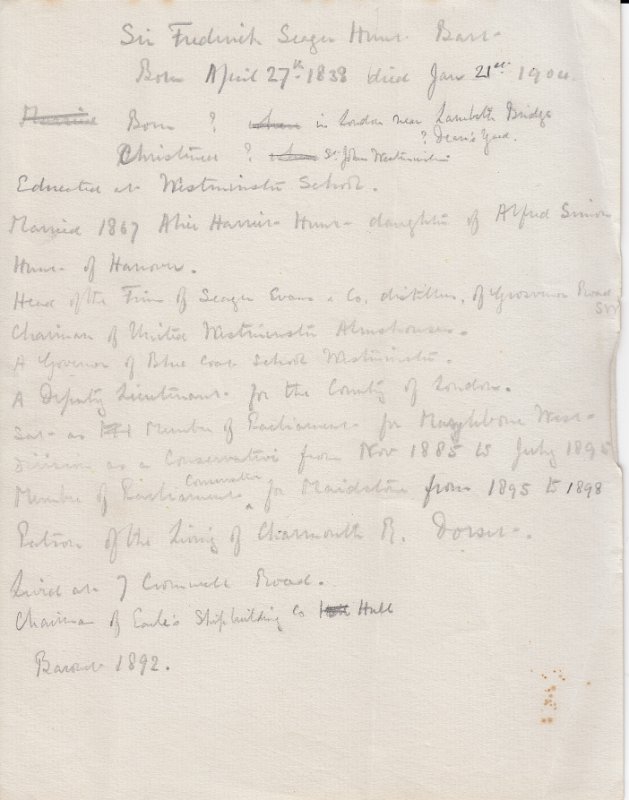 Sir Frederick Seager Hunt Bart
Born April 27th 1838 died Jan 21st 1904
Married Born ? where in London near Lambeth Bridge
? Dean's Yard.
Christened ? where St John Westminster
Educated at Westminster School.
Married 1867 Alice Harriet Hunt daughter of Alfred Simon
Hunt of Hanover.
Head of the Firm of Seager Evans & Co. distillers, of Grosvenor Road
SW
Chairman of United Westminster Almshouses.
A Governor of Blue Coat School Westminster.
A Deputy Lieutenant for the County of London.
Sat as Member of Parliament for Marylebone West
Division as a Conservative from Nov 1885 to July 1895
Conservative
Member of Parliament for Maidstone from 1895 to 1898
Patron of the Living of Charmouth R. Dorset.
Lived at 7 Cromwell Road.
Chairman of Earle's Shipbuilding Co Hull
Baronet 1892.